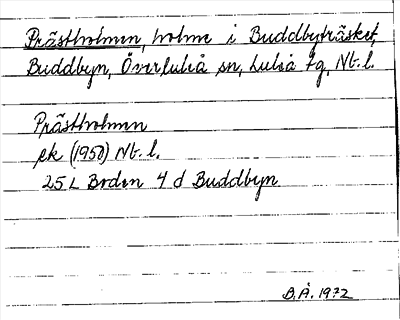 Prästholmen, holme i Buddbyträsket,
Buddbyn, Överluleå sn, Luleå tg, Nb. l.
Prästholmen
ek (1950) Nb. l.
25 L Boden 4 d Buddbyn
B.Å. 1972